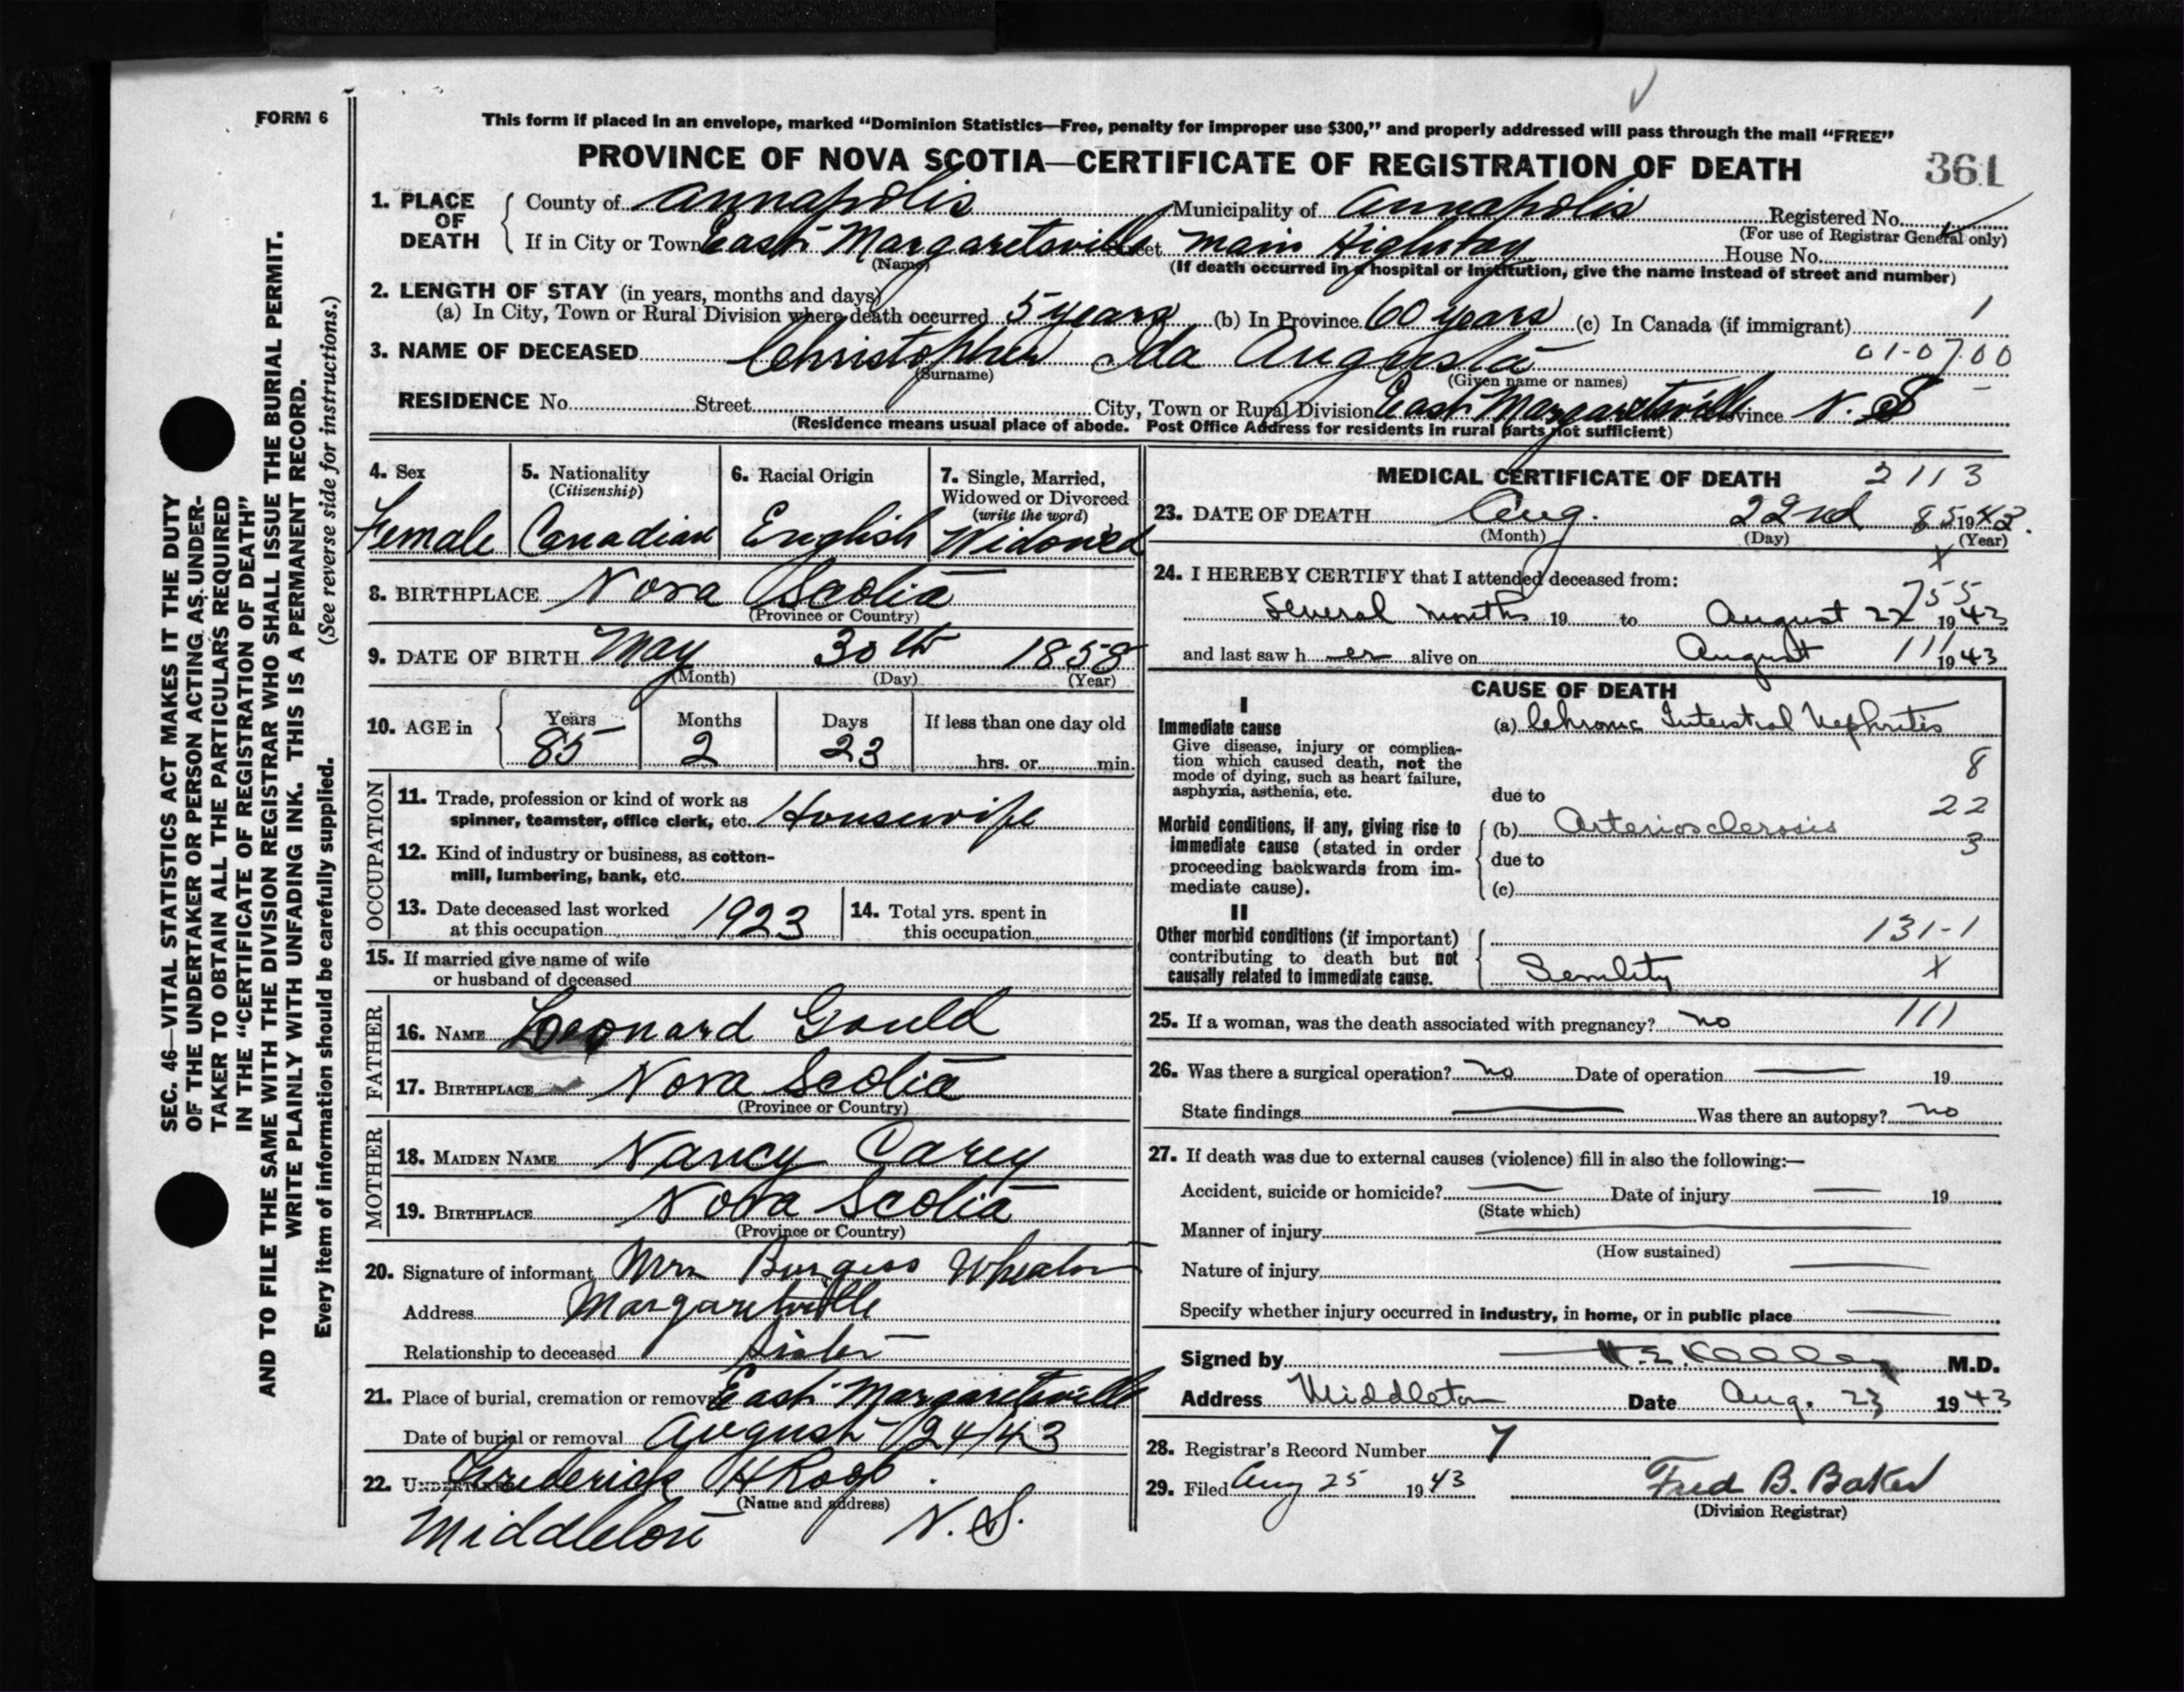 FORM 6
This form if placed in an envelope, marked “Dominion Statistics—Free, penalty for improper use $300,” and properly addressed will pass through the mail “FREE”
PROVINCE OF NOVA SCOTIA—CERTIFICATE OF REGISTRATION OF DEATH
361
1. PLACE OF DEATH
County of Annapolis Municipality of Annapolis Registered No.
(For use of Registrar General only)
If in City or Town East Margaretsville Street Main Highway House No.
(Name) (If death occurred in a hospital or institution, give the name instead of street and number)
2. LENGTH OF STAY (in years, months and days)
(a) In City, Town or Rural Division where death occurred 5 years (b) In Province 60 years (c) In Canada (if immigrant) 1
3. NAME OF DECEASED Christopher Ida Augusta 01-07.00
(Surname) (Given name or names)
RESIDENCE No. Street City, Town or Rural Division East Margaretsville Province N. S
(Residence means usual place of abode. Post Office Address for residents in rural parts not sufficient)
4. Sex
Female
5. Nationality
(Citizenship)
Canadian
6. Racial Origin
English
7. Single, Married, Widowed or Divorced
(write the word)
Widowed
8. BIRTHPLACE Nova Scotia
(Province or Country)
9. DATE OF BIRTH May 30th 1858
(Month) (Day) (Year)
10. AGE in
Years 85
Months 2
Days 23
If less than one day old
hrs. or min.
OCCUPATION
11. Trade, profession or kind of work as
spinner, teamster, office clerk, etc. Housewife
12. Kind of industry or business, as cotton-
mill, lumbering, bank, etc.
13. Date deceased last worked
at this occupation 1923
14. Total yrs. spent in
this occupation
15. If married give name of wife
or husband of deceased
FATHER
16. NAME Leonard Gould
17. BIRTHPLACE Nova Scotia
(Province or Country)
MOTHER
18. MAIDEN NAME Nancy Carey
19. BIRTHPLACE Nova Scotia
(Province or Country)
20. Signature of informant Mrs Burgess Wheaton
Address Margaretville
Relationship to deceased Sister
21. Place of burial, cremation or removal East Margaretsville
Date of burial or removal August /24/43
22. UNDERTAKER Frederick H Roop
(Name and address)
Middleton N. S.
MEDICAL CERTIFICATE OF DEATH 2113
23. DATE OF DEATH Aug. 22nd 85 1943.
(Month) (Day) (Year)
X
24. I HEREBY CERTIFY that I attended deceased from:
755
Several months 19 to August 22 1943
and last saw h er alive on August 111 1943
CAUSE OF DEATH
I
Immediate cause
Give disease, injury or complica-
tion which caused death, not the
mode of dying, such as heart failure,
asphyxia, asthenia, etc.
(a) Chronic Interstial Nephritis
8
due to
22
Morbid conditions, if any, giving rise to
immediate cause (stated in order
proceeding backwards from im-
mediate cause).
(b) Arteriosclerosis
3
due to
(c)
II
Other morbid conditions (if important)
contributing to death but not
causally related to immediate cause.
131-1
Senility X
25. If a woman, was the death associated with pregnancy? no 111
26. Was there a surgical operation? no Date of operation 19
State findings Was there an autopsy? no
27. If death was due to external causes (violence) fill in also the following:—
Accident, suicide or homicide? Date of injury 19
(State which)
Manner of injury
(How sustained)
Nature of injury
Specify whether injury occurred in industry, in home, or in public place
Signed by H. E. Kelley M.D.
Address Middleton Date Aug. 23 1943
28. Registrar's Record Number 7
29. Filed Aug 25 1943 Fred B. Baker
(Division Registrar)
SEC. 46—VITAL STATISTICS ACT MAKES IT THE DUTY
OF THE UNDERTAKER OR PERSON ACTING AS UNDER-
TAKER TO OBTAIN ALL THE PARTICULARS REQUIRED
IN THE “CERTIFICATE OF REGISTRATION OF DEATH”
AND TO FILE THE SAME WITH THE DIVISION REGISTRAR WHO SHALL ISSUE THE BURIAL PERMIT.
WRITE PLAINLY WITH UNFADING INK. THIS IS A PERMANENT RECORD.
Every item of information should be carefully supplied. (See reverse side for instructions.)